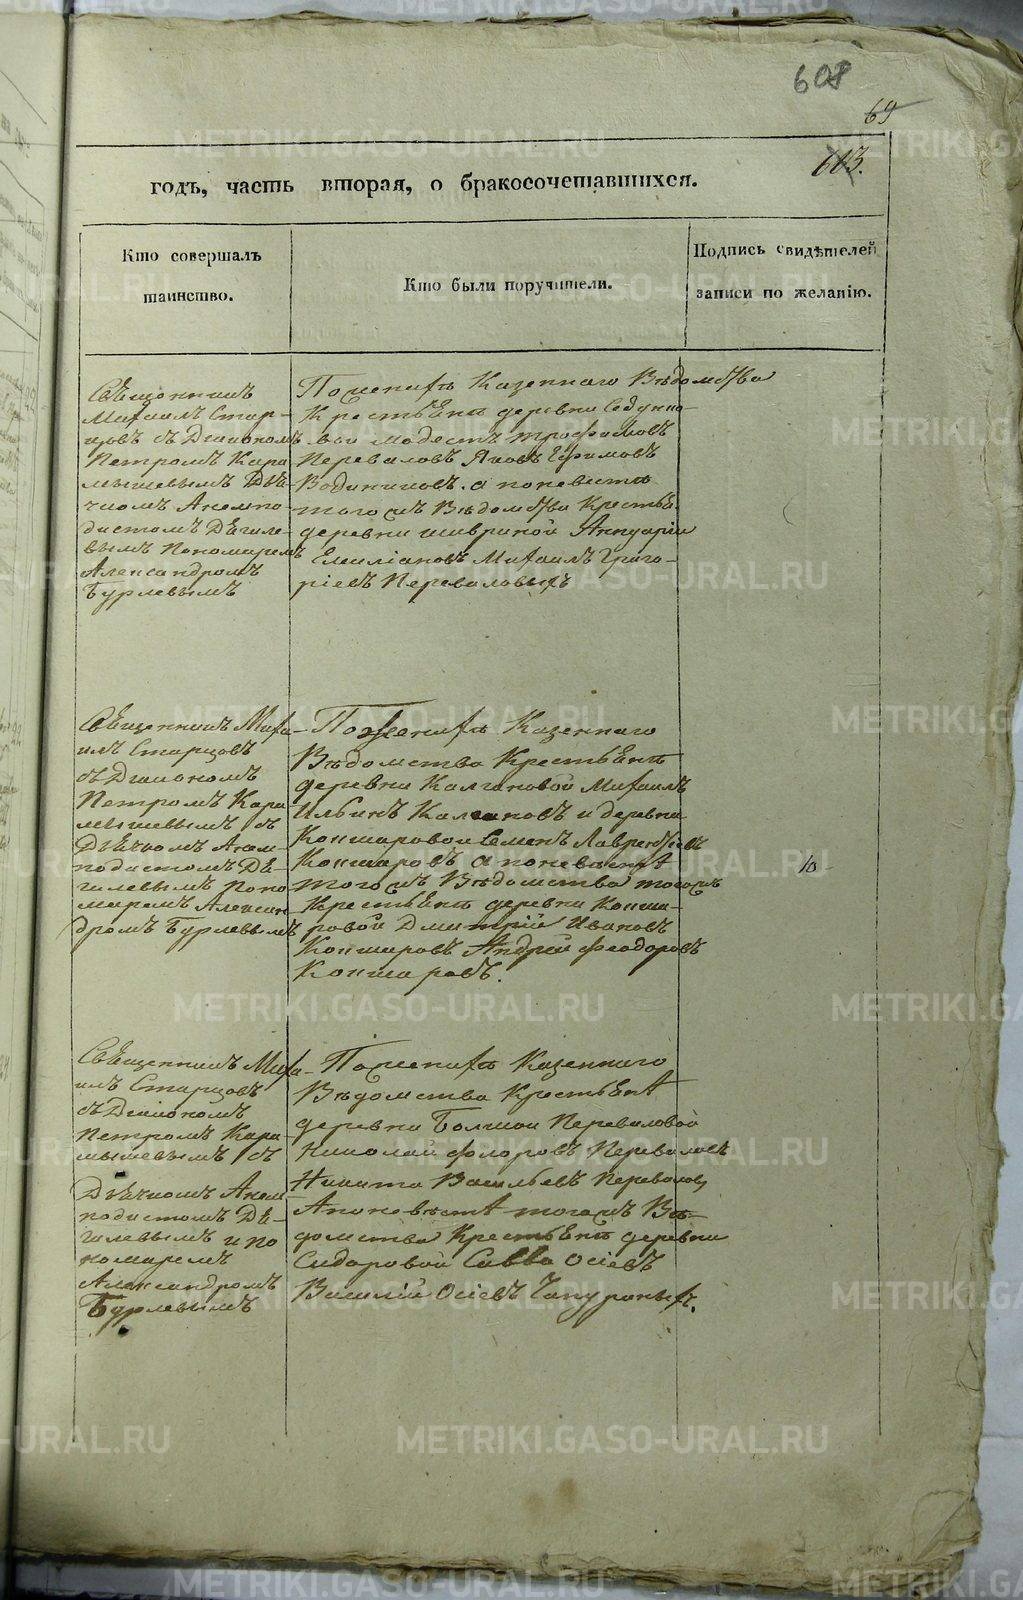 608
69
603.
годъ, часть вторая, о бракосочетавшихся.
Кто совершалъ
таинство.
Кто были поручители.
Подпись свидѣтелей
записи по желанію.
Священникъ
Михаилъ Стар-
цовъ съ Діакономъ
Петромъ Кара
мышевымъ Дья-
чкомъ
дистомъ Дягиле-
вымъ Пономаремъ
Александромъ
Бурлевымъ
По женихѣ Казеннаго Вѣдомства
Крестьяне деревни
вой Модестъ Трофимовъ
Переваловъ Яковъ Ефимовъ
а по невѣстѣ
тогожъ Вѣдомства Крестья-
деревни
Емиліановъ Михаилъ Григо-
ріевъ Переваловыхъ
Священникъ Миха-
илъ Старцовъ
съ Діакономъ
Петромъ Кара
мышевымъ съ
Дьячкомъ Аким-
подистомъ Дя-
гилевымъ Поно
маремъ Алексан
дромъ Бурлевымъ
По женихѣ Казеннаго
Вѣдомства Крестьяне
деревни Калгановой Михаилъ
Ильинъ Калгановъ и деревни
Коншаровой Семенъ Лаврентьевъ
Коншаровъ а по невѣстѣ
тогожъ Вѣдомства тогожъ
Крестьяне деревни Конша-
ровой Дмитрій Ивановъ
Коншаровъ Андрей Феодоровъ
Коншаровъ.
Священникъ Миха-
илъ Старцовъ
съ Діакономъ
Петромъ Кара
мышевымъ съ
Дьячкомъ Аким
подистомъ Дя-
гилевымъ и по
номаремъ
Александромъ
Бурлевымъ
По женихѣ Казеннаго
Вѣдомства Крестьяне
деревни Болшой Переваловой
Николай Флоровъ Переваловъ
Никита Васильевъ Переваловъ
А по невѣстѣ тогожъ Вѣ-
домства Крестьяне деревни
Сидоровой Савва Осіевъ
Василій Осіевъ
METRIKI.GASO-URAL.RU